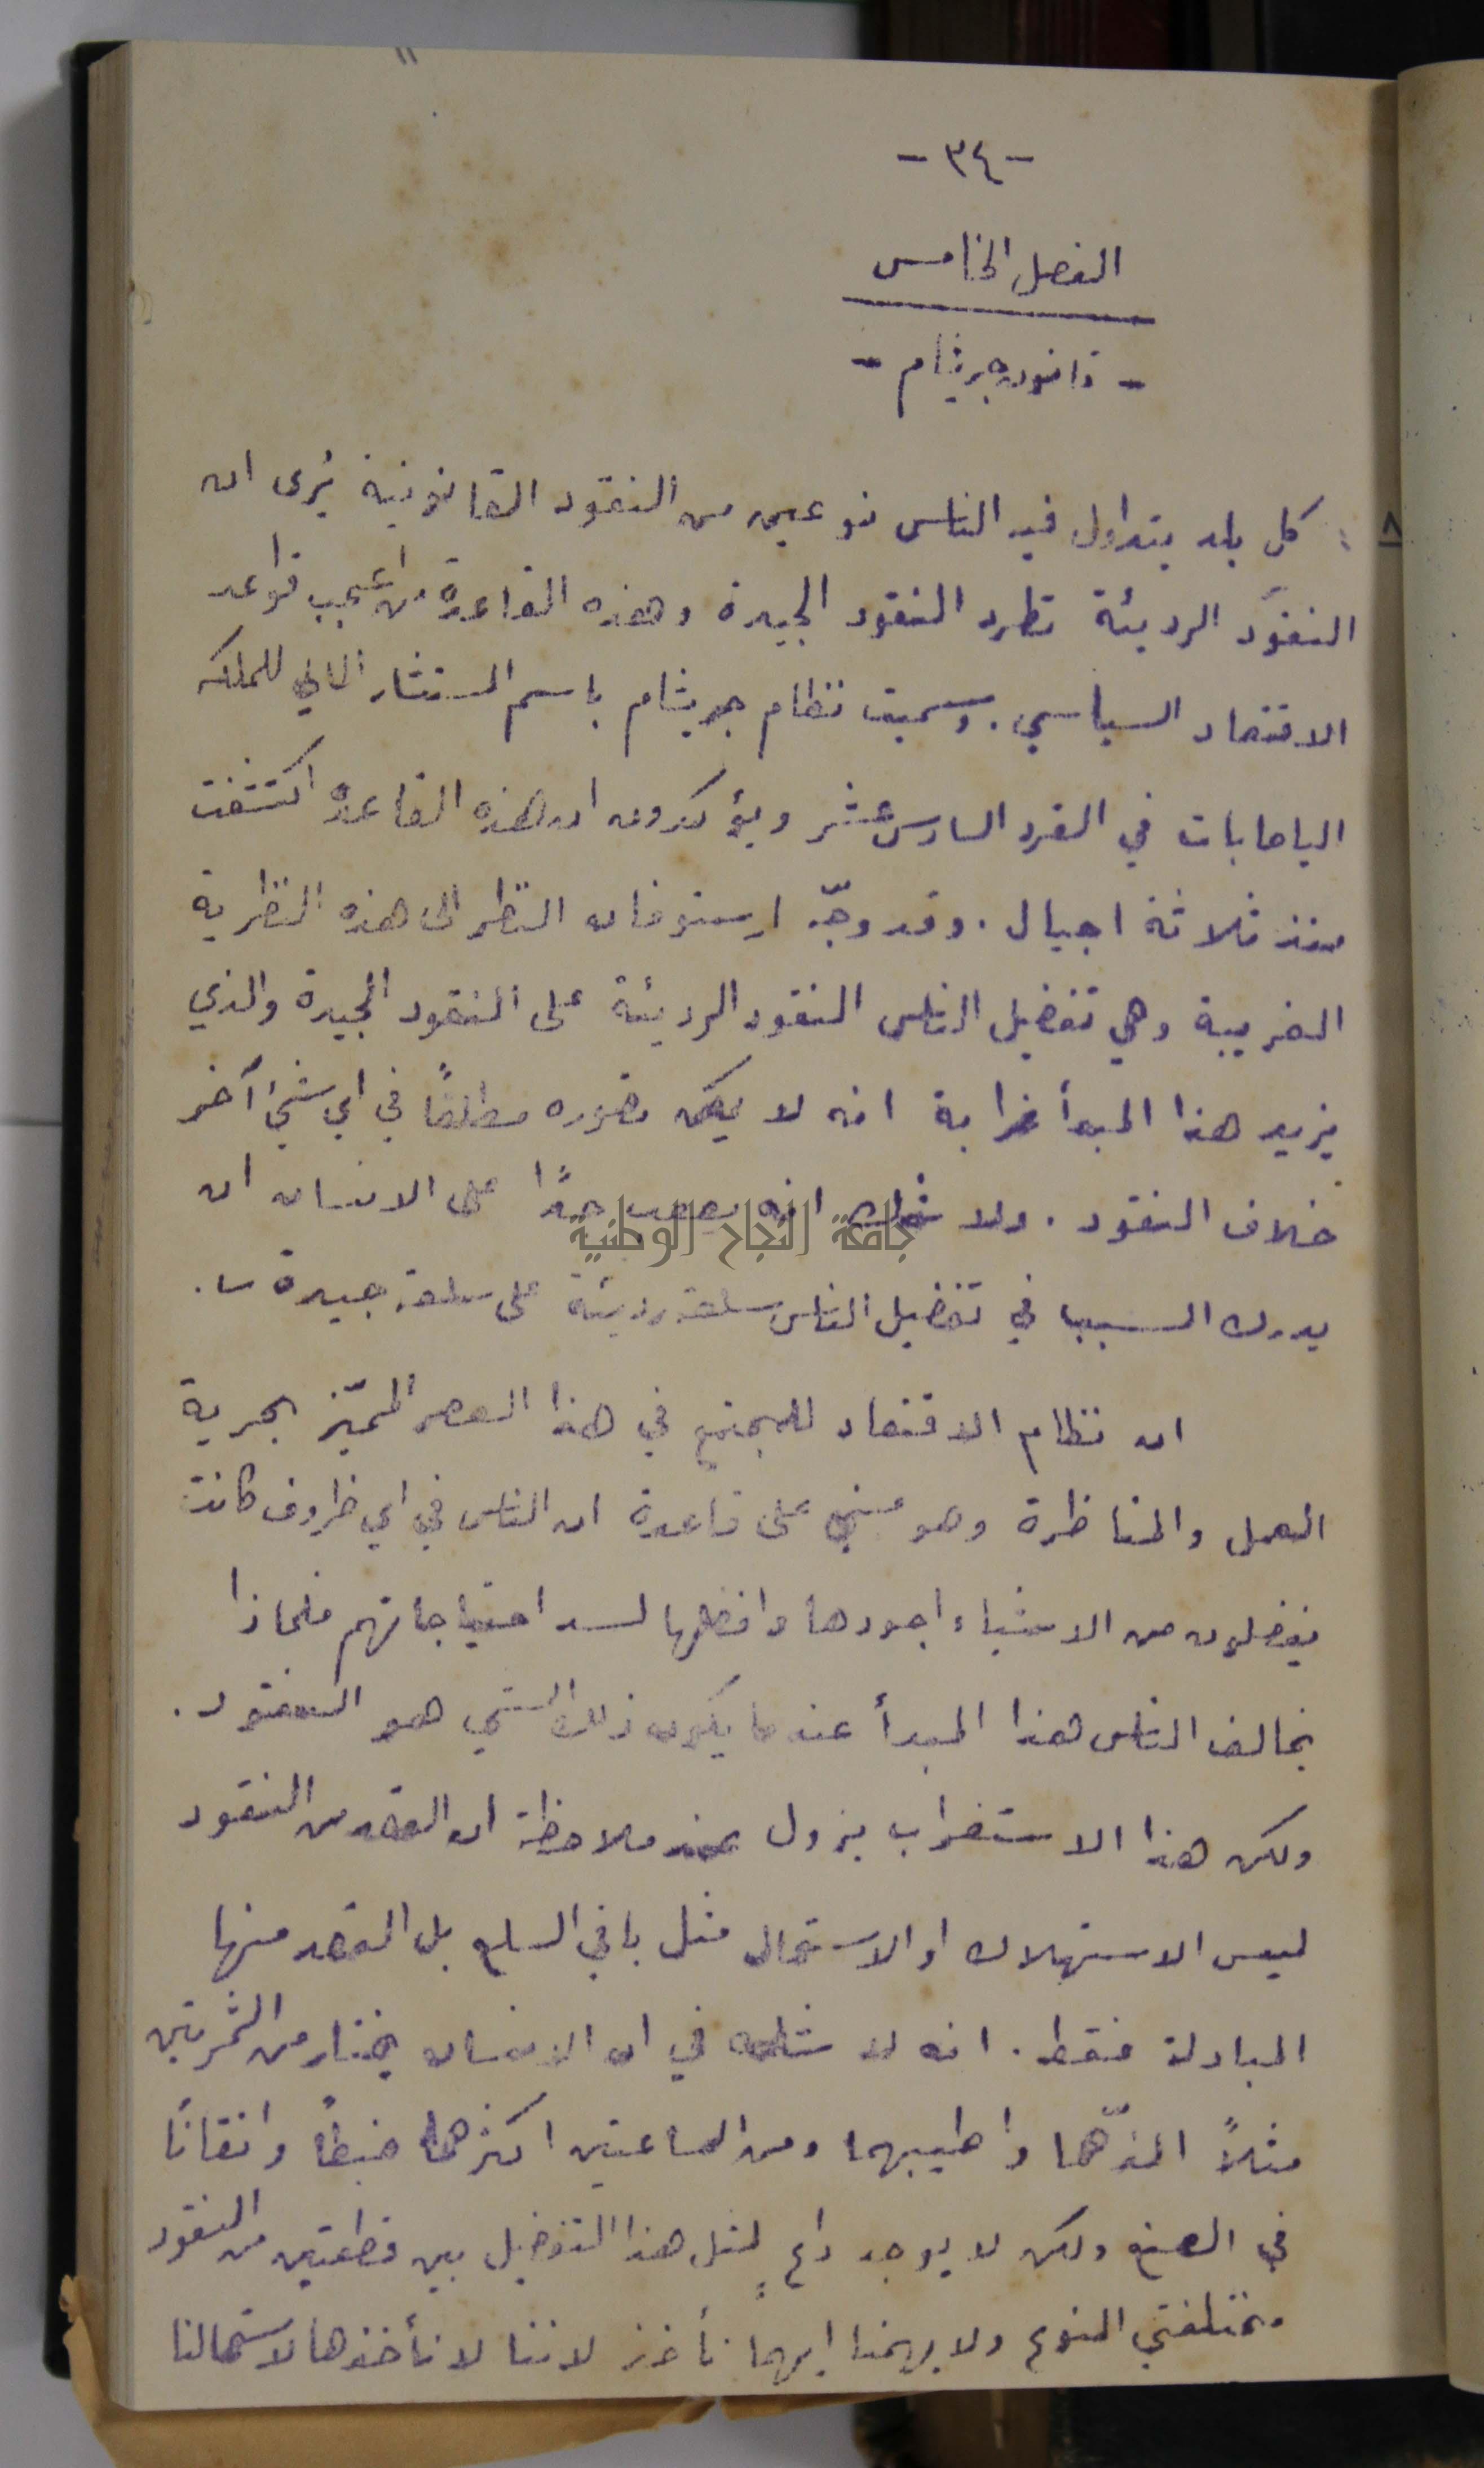 -٣٤-
الفصل الخامس
- قانون جريشام -
: كل بلد يتداول فيه الناس نوعين من النقود القانونية يُرى ان
النقود الرديئة تطرد النقود الجيدة وهذه القاعدة من اعجب قواعد
الاقتصاد السياسي. وسميت نظام جريشام باسم المستشار المالي للملكه
اليصابات في القرن السادس عشر ويؤكدون ان هذه القاعدة اكتشفت
منذ ثلاثة اجيال. وقد وجّه ارستوفان النظر الى هذه النظرية
الغريبة وهي تفضيل الناس النقود الرديئة على النقود الجيدة والذي
يزيد هذا المبدأ غرابة انه لا يمكن تصوره مطلقاً في اي شيء آخر
خلاف النقود. ولا شك انه يصعب جداً على الانسان ان
يدرك السبب في تفضيل الناس سلعة رديئة على سلعة جيدة.
جامعة النجاح الوطنية
ان نظام الاقتصاد للمجتمع في هذا العصر المميّز بحرية
العمل والمناظرة وهو مبني على قاعدة ان الناس في اي ظروف كانت
يفضلون من الاشياء اجودها وافضلها لسد احتياجاتهم فلماذا
يخالف الناس هذا المبدأ عندما يكون ذلك الشيء هو النقود.
ولكن هذا الاستغراب يزول عند ملاحظة ان القصد من النقود
ليس الاستهلاك او الاستعمال مثل باقي السلع بل القصد منها
المبادلة فقط. انه لا شك في ان الانسان يختار من الثمرتين
مثلاً الذّهما واطيبهما ومن الساعتين اكثرهما ضبطاً واتقاناً
في الصنع ولكن لا يوجد داعٍ لمثل هذا التفضيل بين قطعتين من النقود
مختلفتي النوع ولا يهمنا ايهما نأخذ لاننا لا نأخذها لاستعمالنا